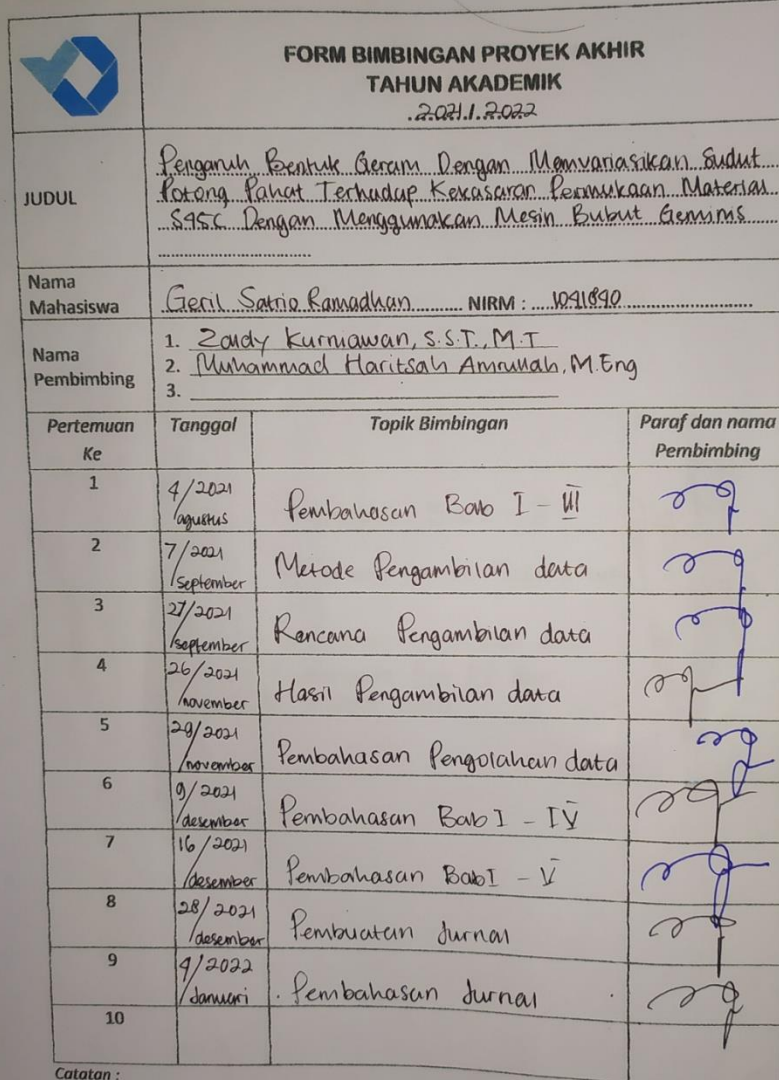 FORM BIMBINGAN PROYEK AKHIR
TAHUN AKADEMIK
2021 / 2022
JUDUL
Pengaruh Bentuk Geram Dengan Memvariasikan Sudut
Potong Pahat Terhadap Kekasaran Permukaan Material
S45C Dengan Menggunakan Mesin Bubut Gemims
Nama
Mahasiswa
Geril Satrio Ramadhan NIRM : 1041840
Nama
Pembimbing
1. Zaldy Kurniawan, S.S.T., M.T
2. Muhammad Haritsah Amrullah, M.Eng
3.
Pertemuan Ke Tanggal Topik Bimbingan Paraf dan nama Pembimbing
1 4/2021 /agustus Pembahasan Bab I - III
2 7/2021 /september Metode Pengambilan data
3 27/2021 /september Rencana Pengambilan data
4 26/2021 /november Hasil Pengambilan data
5 29/2021 /november Pembahasan Pengolahan data
6 9/2021 /desember Pembahasan Bab I - IV
7 16/2021 /desember Pembahasan Bab I - V
8 28/2021 /desember Pembuatan Jurnal
9 4/2022 /Januari Pembahasan Jurnal
10
Catatan :